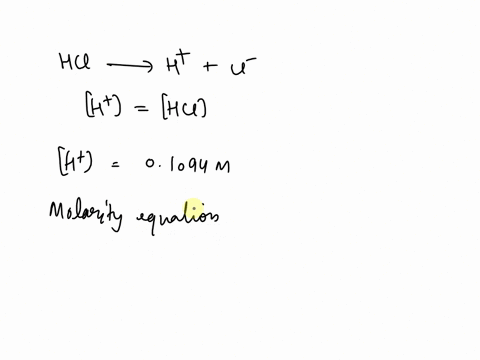 HCl ⟶ H⁺ + Cl⁻
[H⁺) = [HCl)
[H⁺) = 0.1094 M
Molarity equation